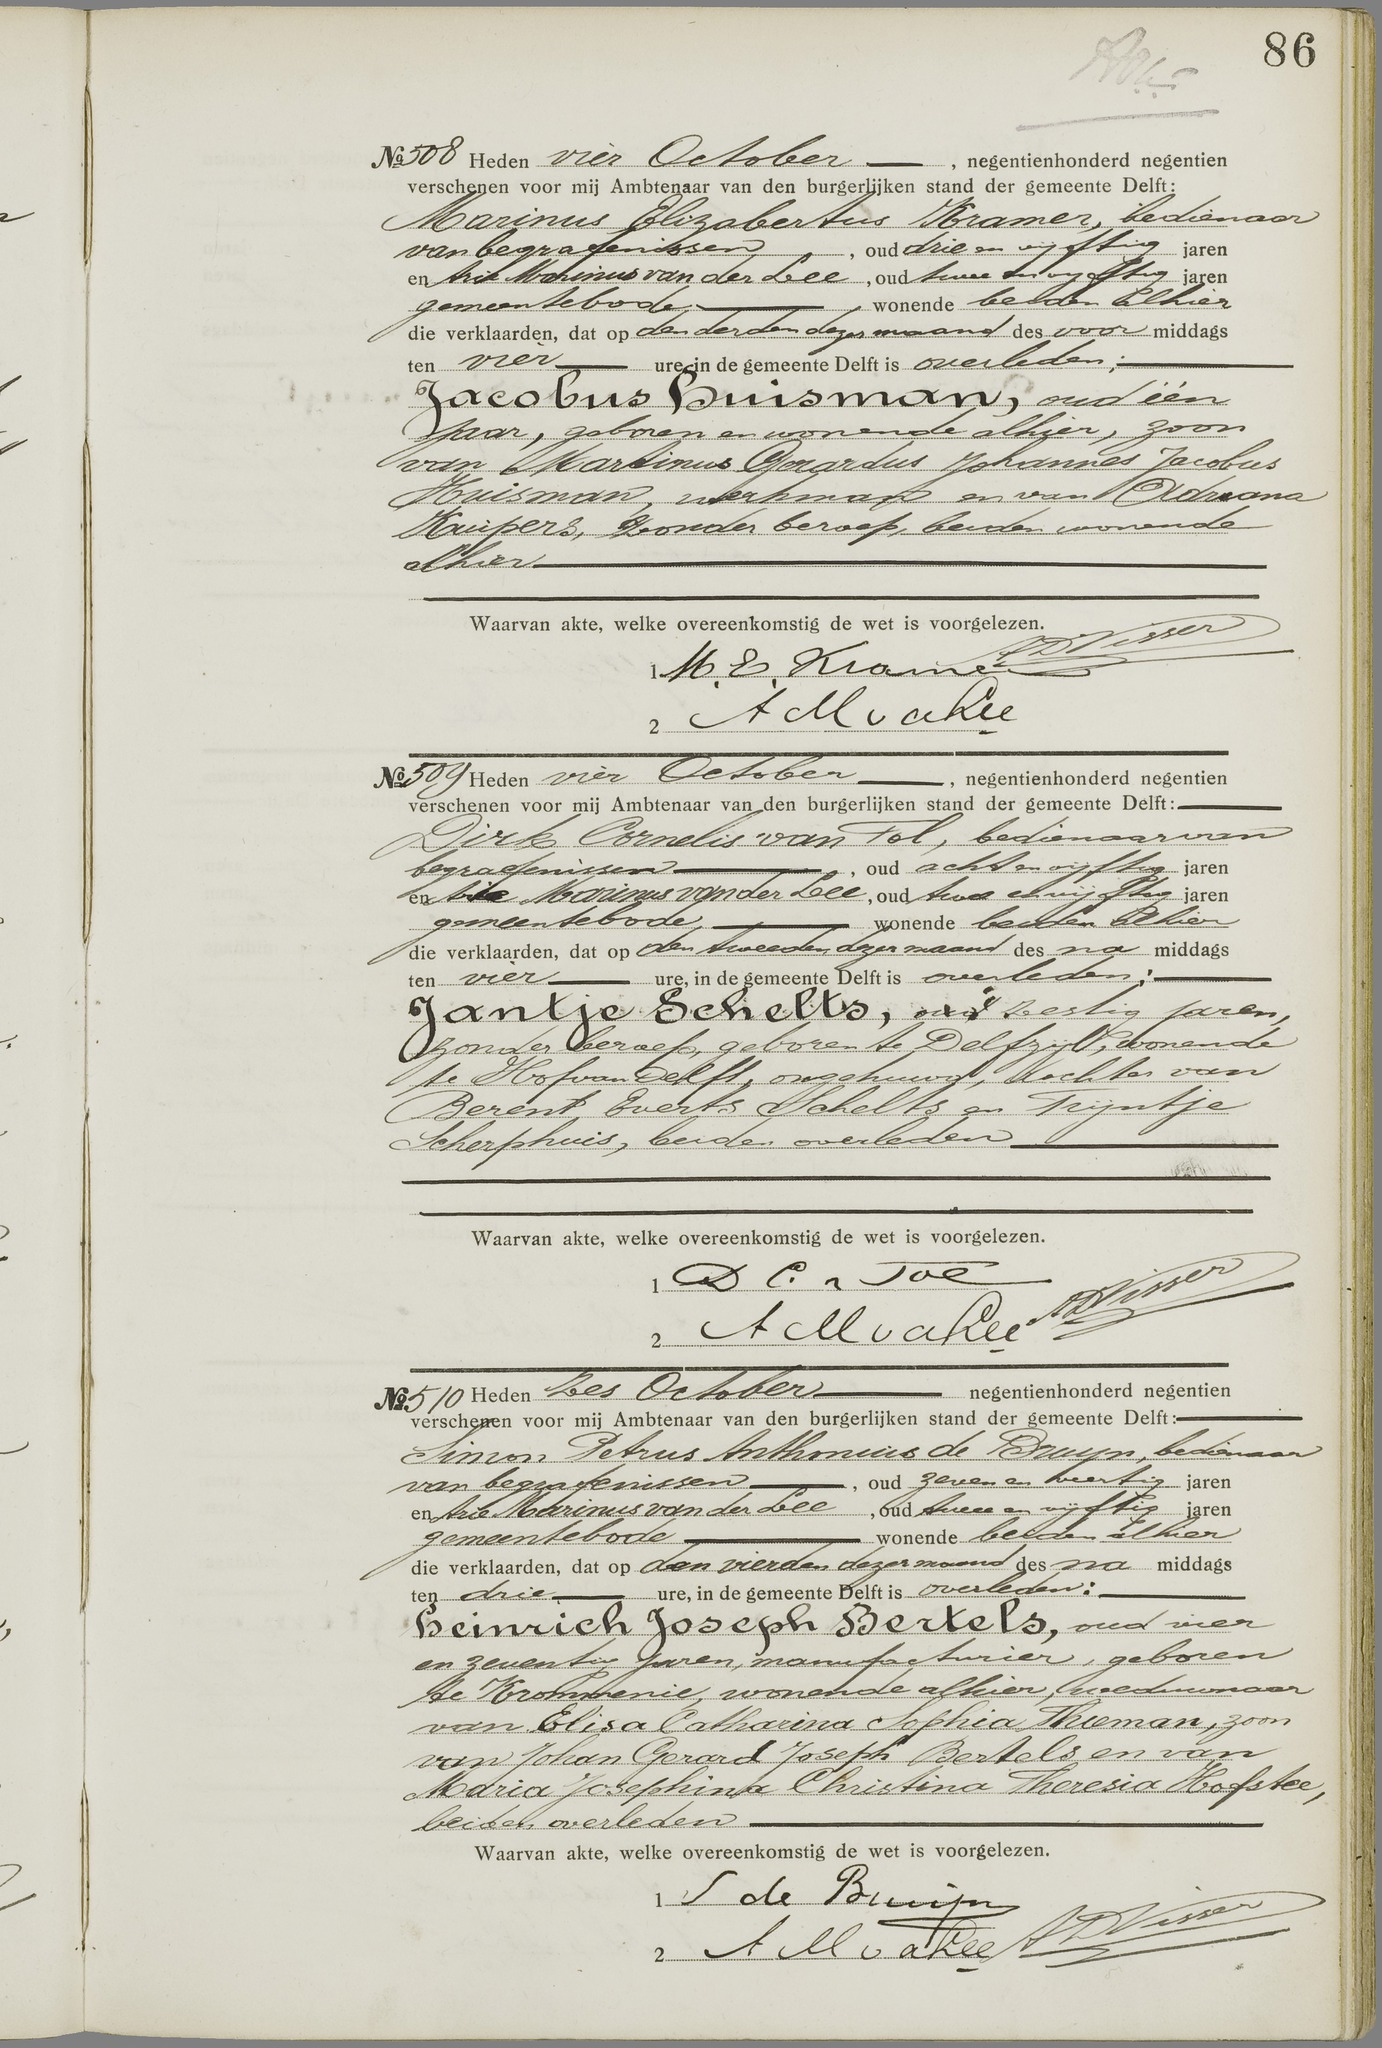 86
No 508 Heden vier October , negentienhonderd negentien
verschenen voor mij Ambtenaar van den burgerlijken stand der gemeente Delft:
Marinus Elizabertus Kramer, bedienaar
van begrafenissen , oud drie en vijftig jaren
en Arie Marinus van der Lee , oud twee en vijftig jaren
gemeentebode wonende beiden alhier
die verklaarden, dat op den derden dezer maand des voor middags
ten vier ure, in de gemeente Delft is overleden:
Jacobus Huisman, oud één
jaar, geboren en wonende alhier, zoon
van Martinus Gerardus Johannes Jacobus
Huisman, werkman en van Adriana
Kuipers, zonder beroep, beiden wonende
alhier
Waarvan akte, welke overeenkomstig de wet is voorgelezen.
1 M. E. Kramer Visser
2 A M v d Lee
No 509 Heden vier October , negentienhonderd negentien
verschenen voor mij Ambtenaar van den burgerlijken stand der gemeente Delft:
Dirk Cornelis van Tol, bedienaar van
begrafenissen , oud acht en vijftig jaren
en Arie Marinus van der Lee , oud twee en vijftig jaren
gemeentebode wonende beiden alhier
die verklaarden, dat op den tweeden dezer maand des na middags
ten vier ure, in de gemeente Delft is overleden:
Jantje Schelts, oud zestig jaren,
zonder beroep, geboren te Delfzijl, wonende
te Hof van Delft, ongehuwd, dochter van
Berent Everts Schelts en Trijntje
Scherphuis, beiden overleden
Waarvan akte, welke overeenkomstig de wet is voorgelezen.
1 D C v Tol
2 A M v d Lee Visser
No 510 Heden zes October negentienhonderd negentien
verschenen voor mij Ambtenaar van den burgerlijken stand der gemeente Delft:
Simon Petrus Anthonius de Bruijn, bedienaar
van begrafenissen , oud zeven en veertig jaren
en Arie Marinus van der Lee , oud twee en vijftig jaren
gemeentebode wonende beiden alhier
die verklaarden, dat op den vierden dezer maand des na middags
ten drie ure, in de gemeente Delft is overleden:
Heinrich Joseph Bertels, oud vier
en zeventig jaren, manufacturier, geboren
te Krommenie, wonende alhier, weduwnaar
van Elisa Catharina Sophia Thieman, zoon
van Johan Gerard Joseph Bertels en van
Maria Josephina Christina Theresia Hofstee,
beiden overleden
Waarvan akte, welke overeenkomstig de wet is voorgelezen.
1 S de Bruijn
2 A M v d Lee Visser